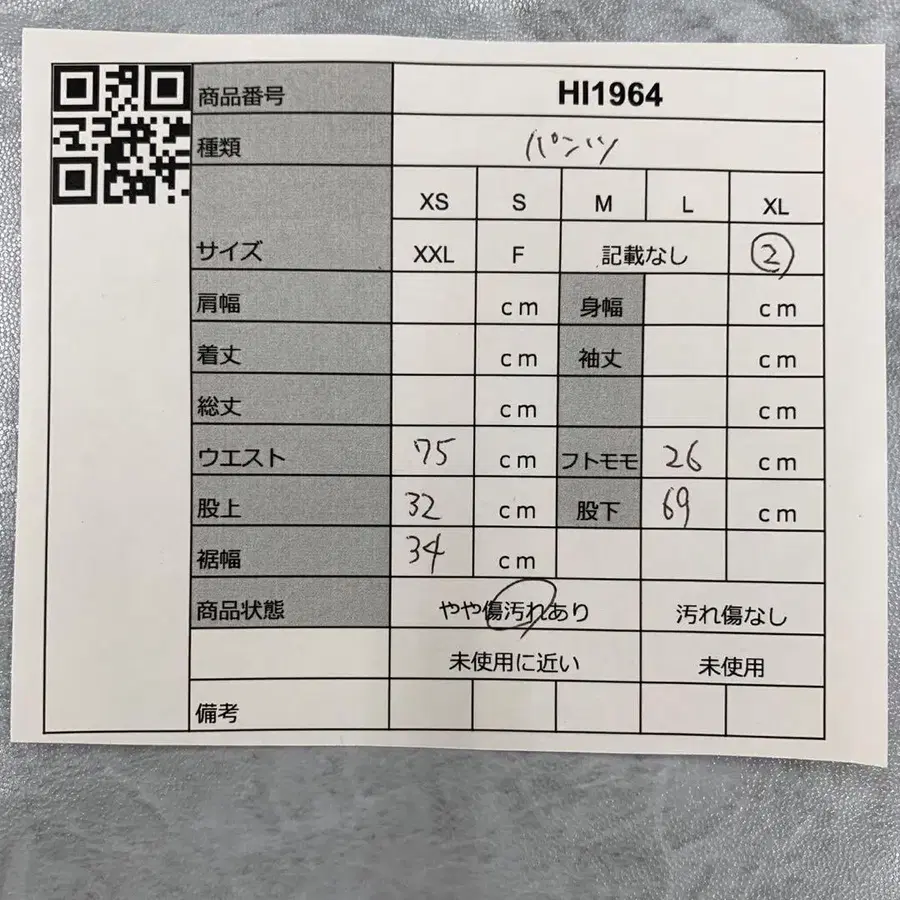 商品番号 HI1964
種類 パンツ
XS S M L XL
サイズ XXL F 記載なし 2
肩幅 cm 身幅 cm
着丈 cm 袖丈 cm
総丈 cm cm
ウエスト 75 cm フトモモ 26 cm
股上 32 cm 股下 69 cm
裾幅 34 cm
商品状態 やや傷汚れあり 汚れ傷なし
未使用に近い 未使用
備考